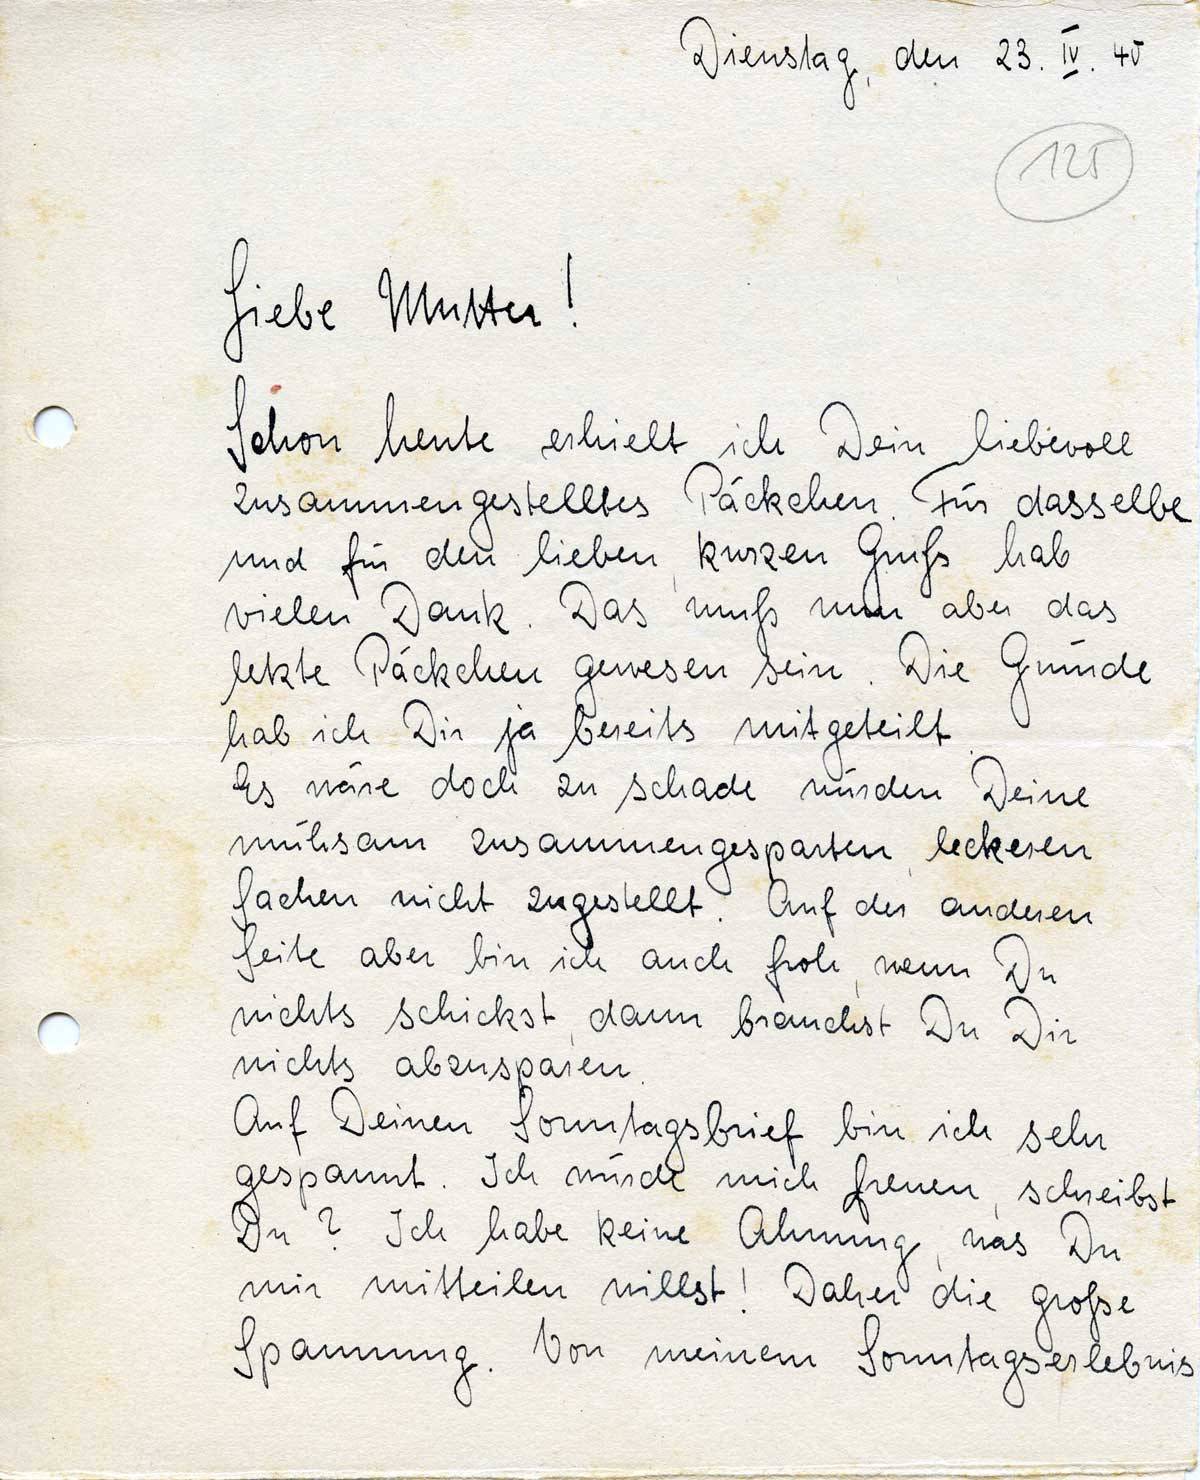 Dienstag, den 23. IV. 40
125
Liebe Mutter!
Schon heute erhielt ich Dein liebevoll
zusammengestelltes Päckchen. Für dasselbe
und für den lieben, kurzen Gruß hab
vielen Dank. Das muß nun aber das
letzte Päckchen gewesen sein. Die Gründe
hab ich Dir ja bereits mitgeteilt.
Es wäre doch zu schade würden Deine
mühsam zusammengesparten, leckeren
Sachen nicht zugestellt. Auf der anderen
Seite aber bin ich auch froh, wenn Du
nichts schickst, dann brauchst Du Dir
nichts abzusparen.
Auf Deinen Sonntagsbrief bin ich sehr
gespannt. Ich würde mich freuen, schreibst
Du? Ich habe keine Ahnung, was Du
mir mitteilen willst! Daher die große
Spannung. Von meinem Sonntagserlebnis